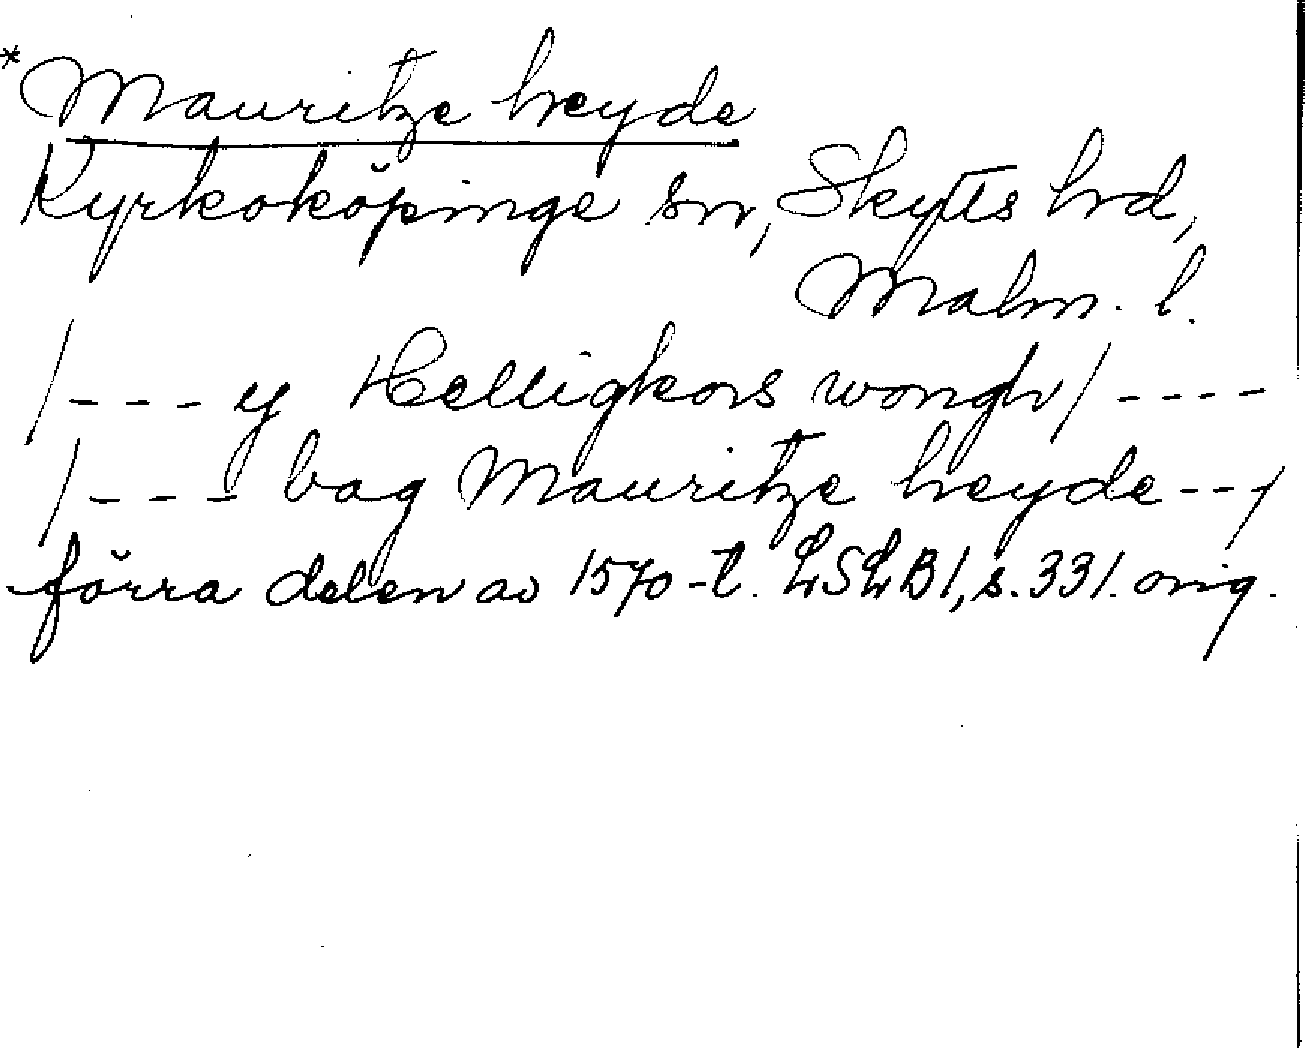 *Mauritze heyde
Kyrkoköpinge sn, Skytts hd,
Malm. l.
/--- y Helligkors wongh/ ----
/--- bag Mauritze heyde ---/
förra delen av 1570-t. LSLB1, s. 331. orig.